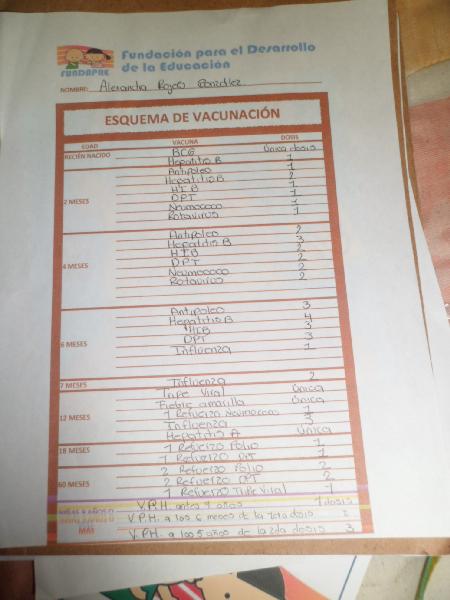 Fundación para el Desarrollo
de la Educación
FUNDAPRE
NOMBRE: Alexandra Rojas González
ESQUEMA DE VACUNACIÓN
EDAD VACUNA DOSIS
RECIÉN NACIDO BCG Única dosis
Hepatitis B 1
Antipoleo 1
Hepatitis B 2
2 MESES HIB 1
DPT 1
Neumococo 1
Rotavirus 1
Antipoleo 2
Hepatitis B 3
HIB 2
4 MESES DPT 2
Neumococo 2
Rotavirus 2
Antipoleo 3
Hepatitis B 4
HIB 3
6 MESES DPT 3
Influenza 1
7 MESES Influenza 2
Tripe Viral Única
Fiebre amarilla Única
12 MESES 1 Refuerzo Neumococo 1
Influenza 3
Hepatitis A Única
18 MESES 1 Refuerzo Polio 1
1 Refuerzo DPT 1
2 Refuerzo Polio 2
60 MESES 2 Refuerzo DPT 2
1 Refuerzo Tripe Viral 1
NIÑAS 9 AÑOS O MÁS V.P.H. antes 9 años 1 dosis
V.P.H. a los 6 meses de la 1era dosis 2
V.P.H. a los 5 años de la 2da dosis 3